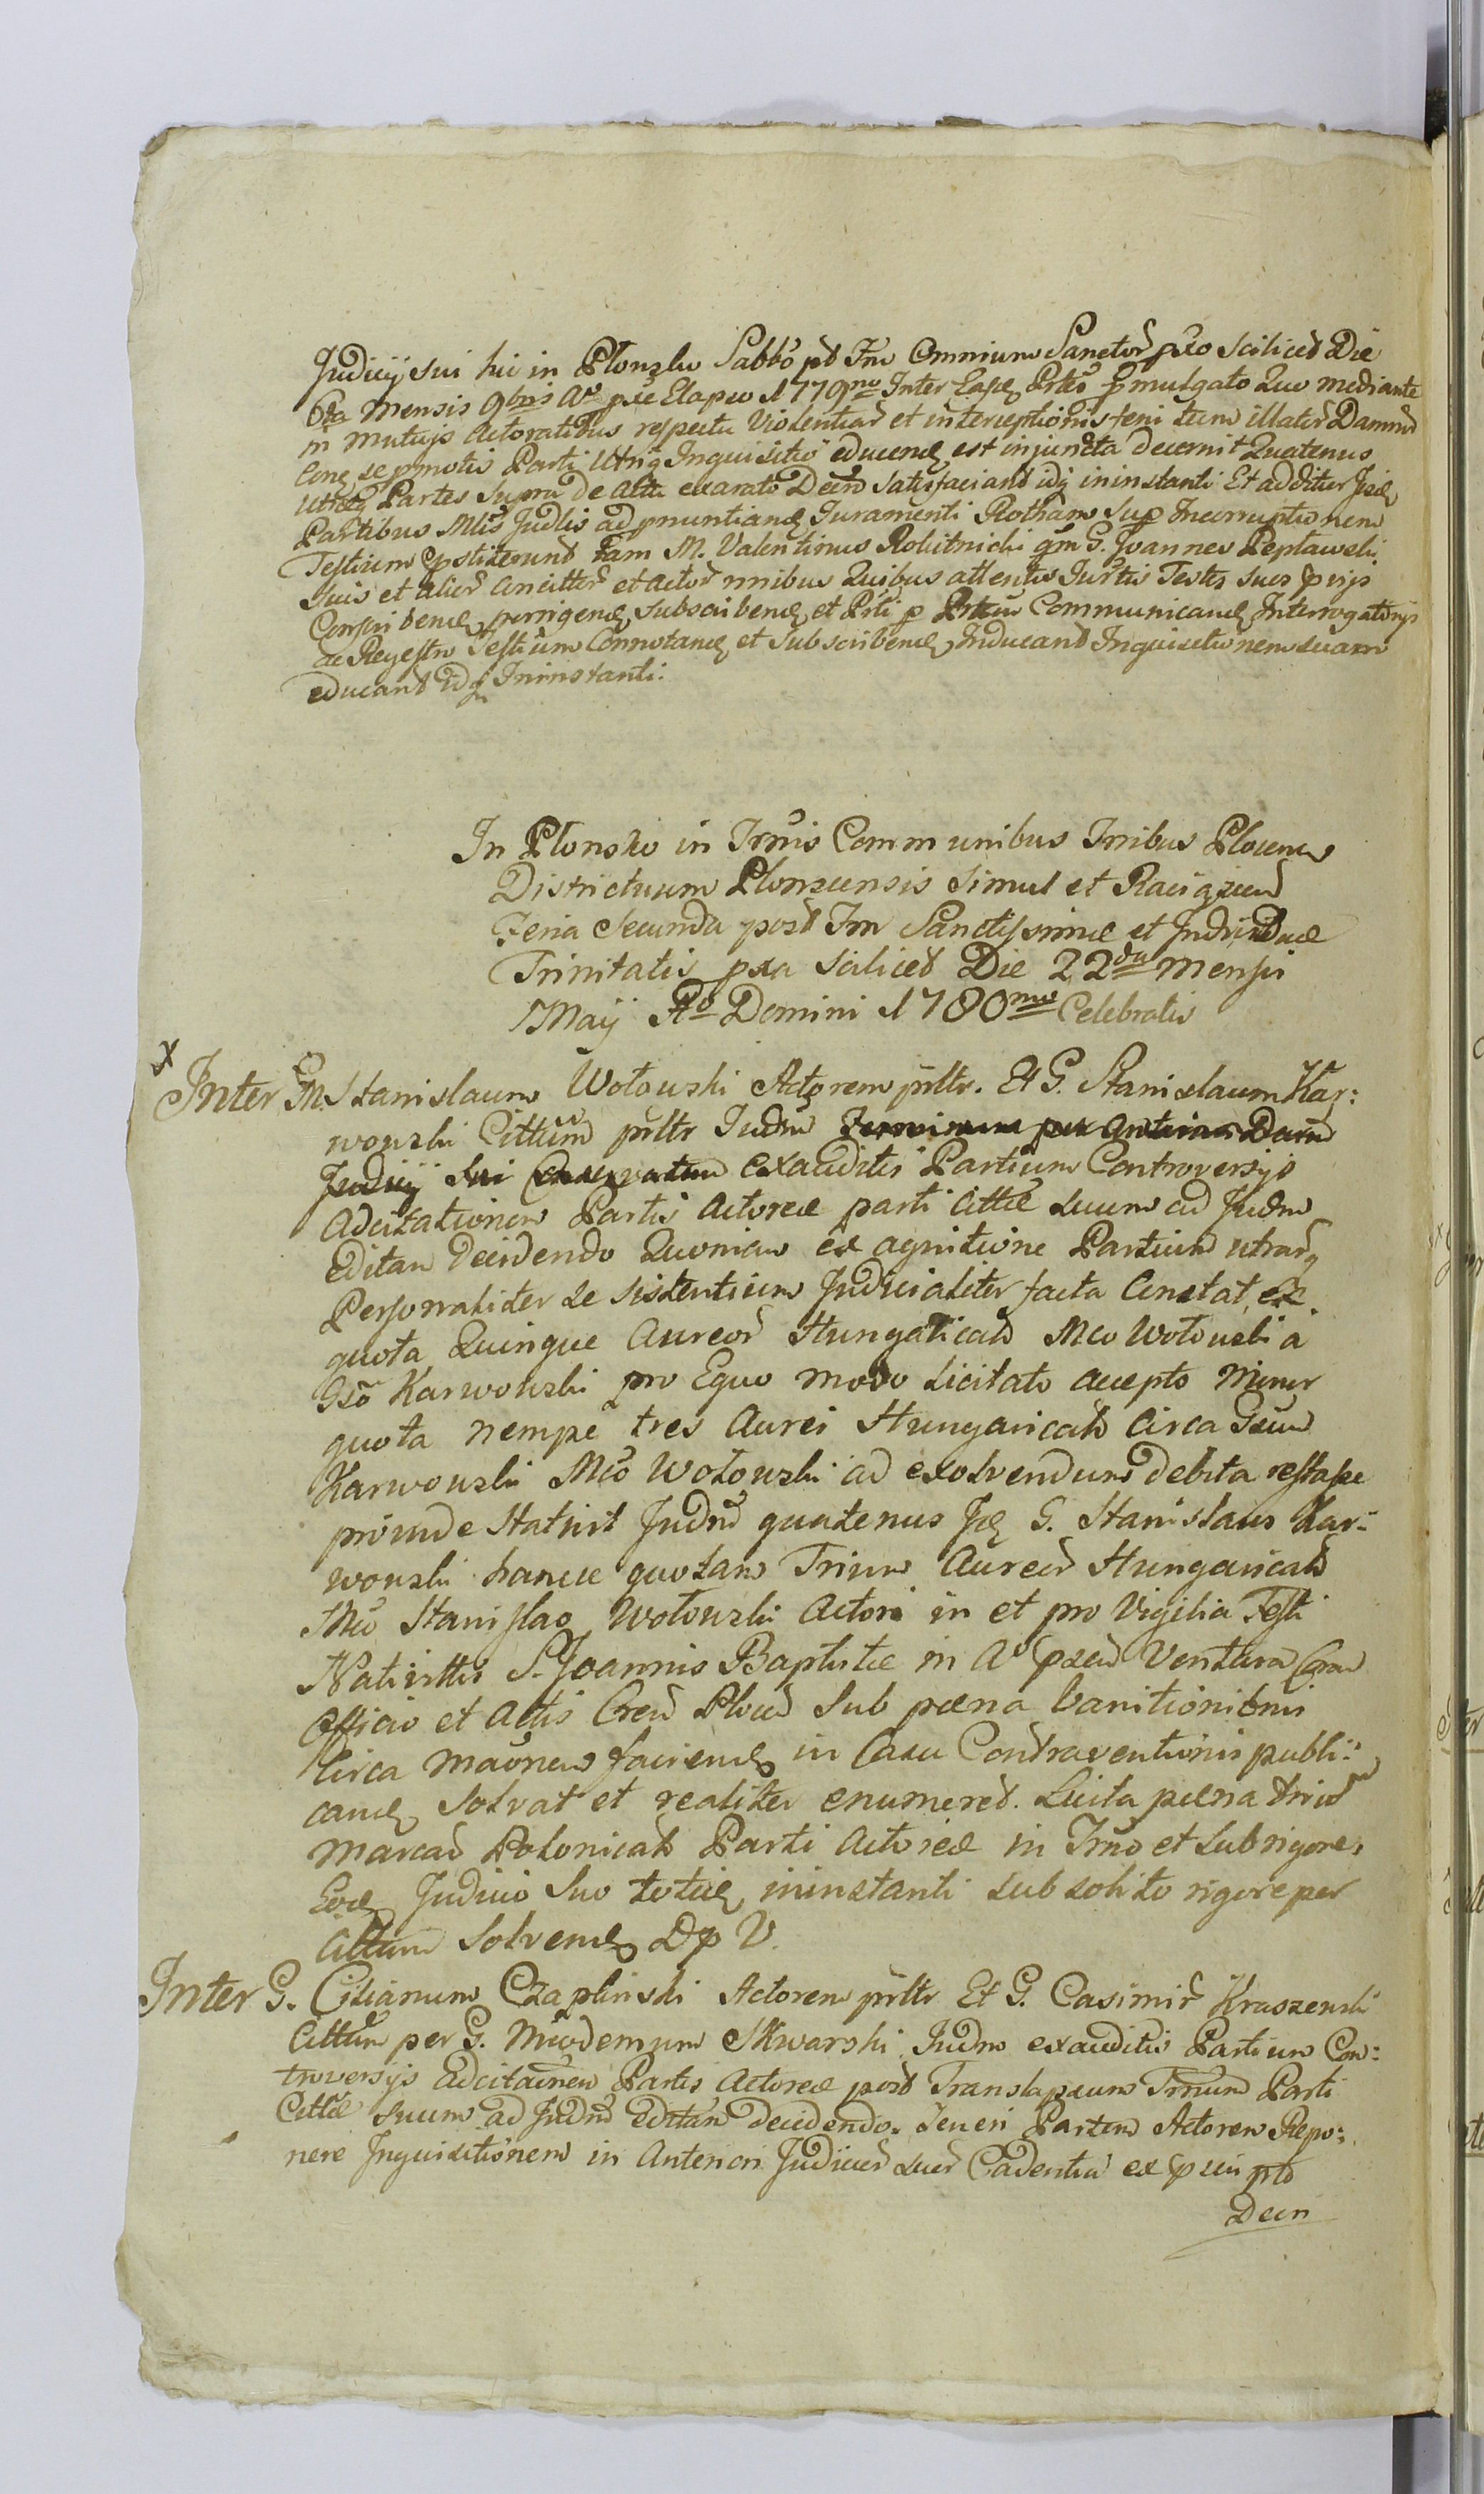 Judicij sui hic in Plonsko Sabbo pt Fm Omnium Sanctor pxo scilicet Die
6ta Mensis 9bris Ao pxe Elapso 1779no Inter Easd Ptes pmulgato Quo mediante
in mutuijs Actoratibus respectu Violentiar et interceptionis feni tum illator Damnor
Cong se pmotis Parti Utriq Inquisitio educend est injuncta decernit Quatenus
Utraeq Partes Supra de Actu exarato Decro satisfaciant idq ininstanti Et additur Iisd
Partibus Mlis Judlis ad pnuntiand Juramenti Rotham Sup Incorruptionem
Testium Cpstiterunt tam M. Valentinus Rokitnicki qm G. Joannes Peplawski
Suis et alior Concittor et Actor nnibus Quibus attentis Jurtis Testes suos pvijs
Conscribend, porrigend, subscribend, et Prti p Prtem Communicand Interrogatorijs
ac Regestro Testium Connotand et Subscribend, Inducant Inquisitionem suam
educant idq Ininstanti.
In Plonsko in Trmis Communibus Trribus Plocens
Districtuum Plonscensis simul et Raciązen
Feria Secunda post Fm Sanctissimae et Individuae
Trinitatis pxa Scilicet Die 22da Mensis
Maij Ao Domini 1780mo Celebratis
x
Inter M. Stanislaum Wołowski Actorem prltr. Et G. Stanislaum Kar:
wowski Cittum prltr Judm Terminum per Decrm
Judicij Sui Conservatum exauditis Partium Controversijs
Adcitationem Partis Actoreae parti Cittae suum ad Judm
Editam Decidendo Quoniam ex agnitione Partium utrarq
Personaliter se sistentium Judicialiter facta Constat, ex
quota Quinque Aureor Hungaricab Mco Wołowski a
Gso Karwowski pro Equo modo licitato accepto Minor
quota nempe tres Aurei Hungaricab Circa Gsum
Karwowski Mco Wołowski ad exolvendum debita restasse
proinde Statuit Judm quatenus Id G. Stanislaus Kar:
wowski hancce quotam Trium Aureor Hungaricab
Mco Stanislao Wołowski Actori in et pro Vigilia Festi
Nativittis S. Joannis Baptistae in Ao pxen Ventura Coram
Officio et Actis Cren Plocen Sub paena banitionibus
Circa maonem faciend in Casu Contraventionis publi:
cand, Solvat et realiter enumeret. Lucita paena trium
Marcar Polonicab Parti Actoreae in Trmo et sub rigore,
Eod Judicio Suo totid ininstanti sub solito rigore per
Cittum Solvend Dp V.
Inter G. Cilianum Czaplinski Actorem prltr Et G. Casimir Kraszewski
Cittum per G. Nicodemum Skwarski Judm exauditis Partium Con:
troversijs Adcitaonem Partis Actoreae post Translapsum Trmum Parti
Cittae suum ad Judm editam decidendo. Teneri Partem Actorem Repo:
nere Inquisitionem in Anteriori Judicior suor Cadentia ex pscripto
Decri